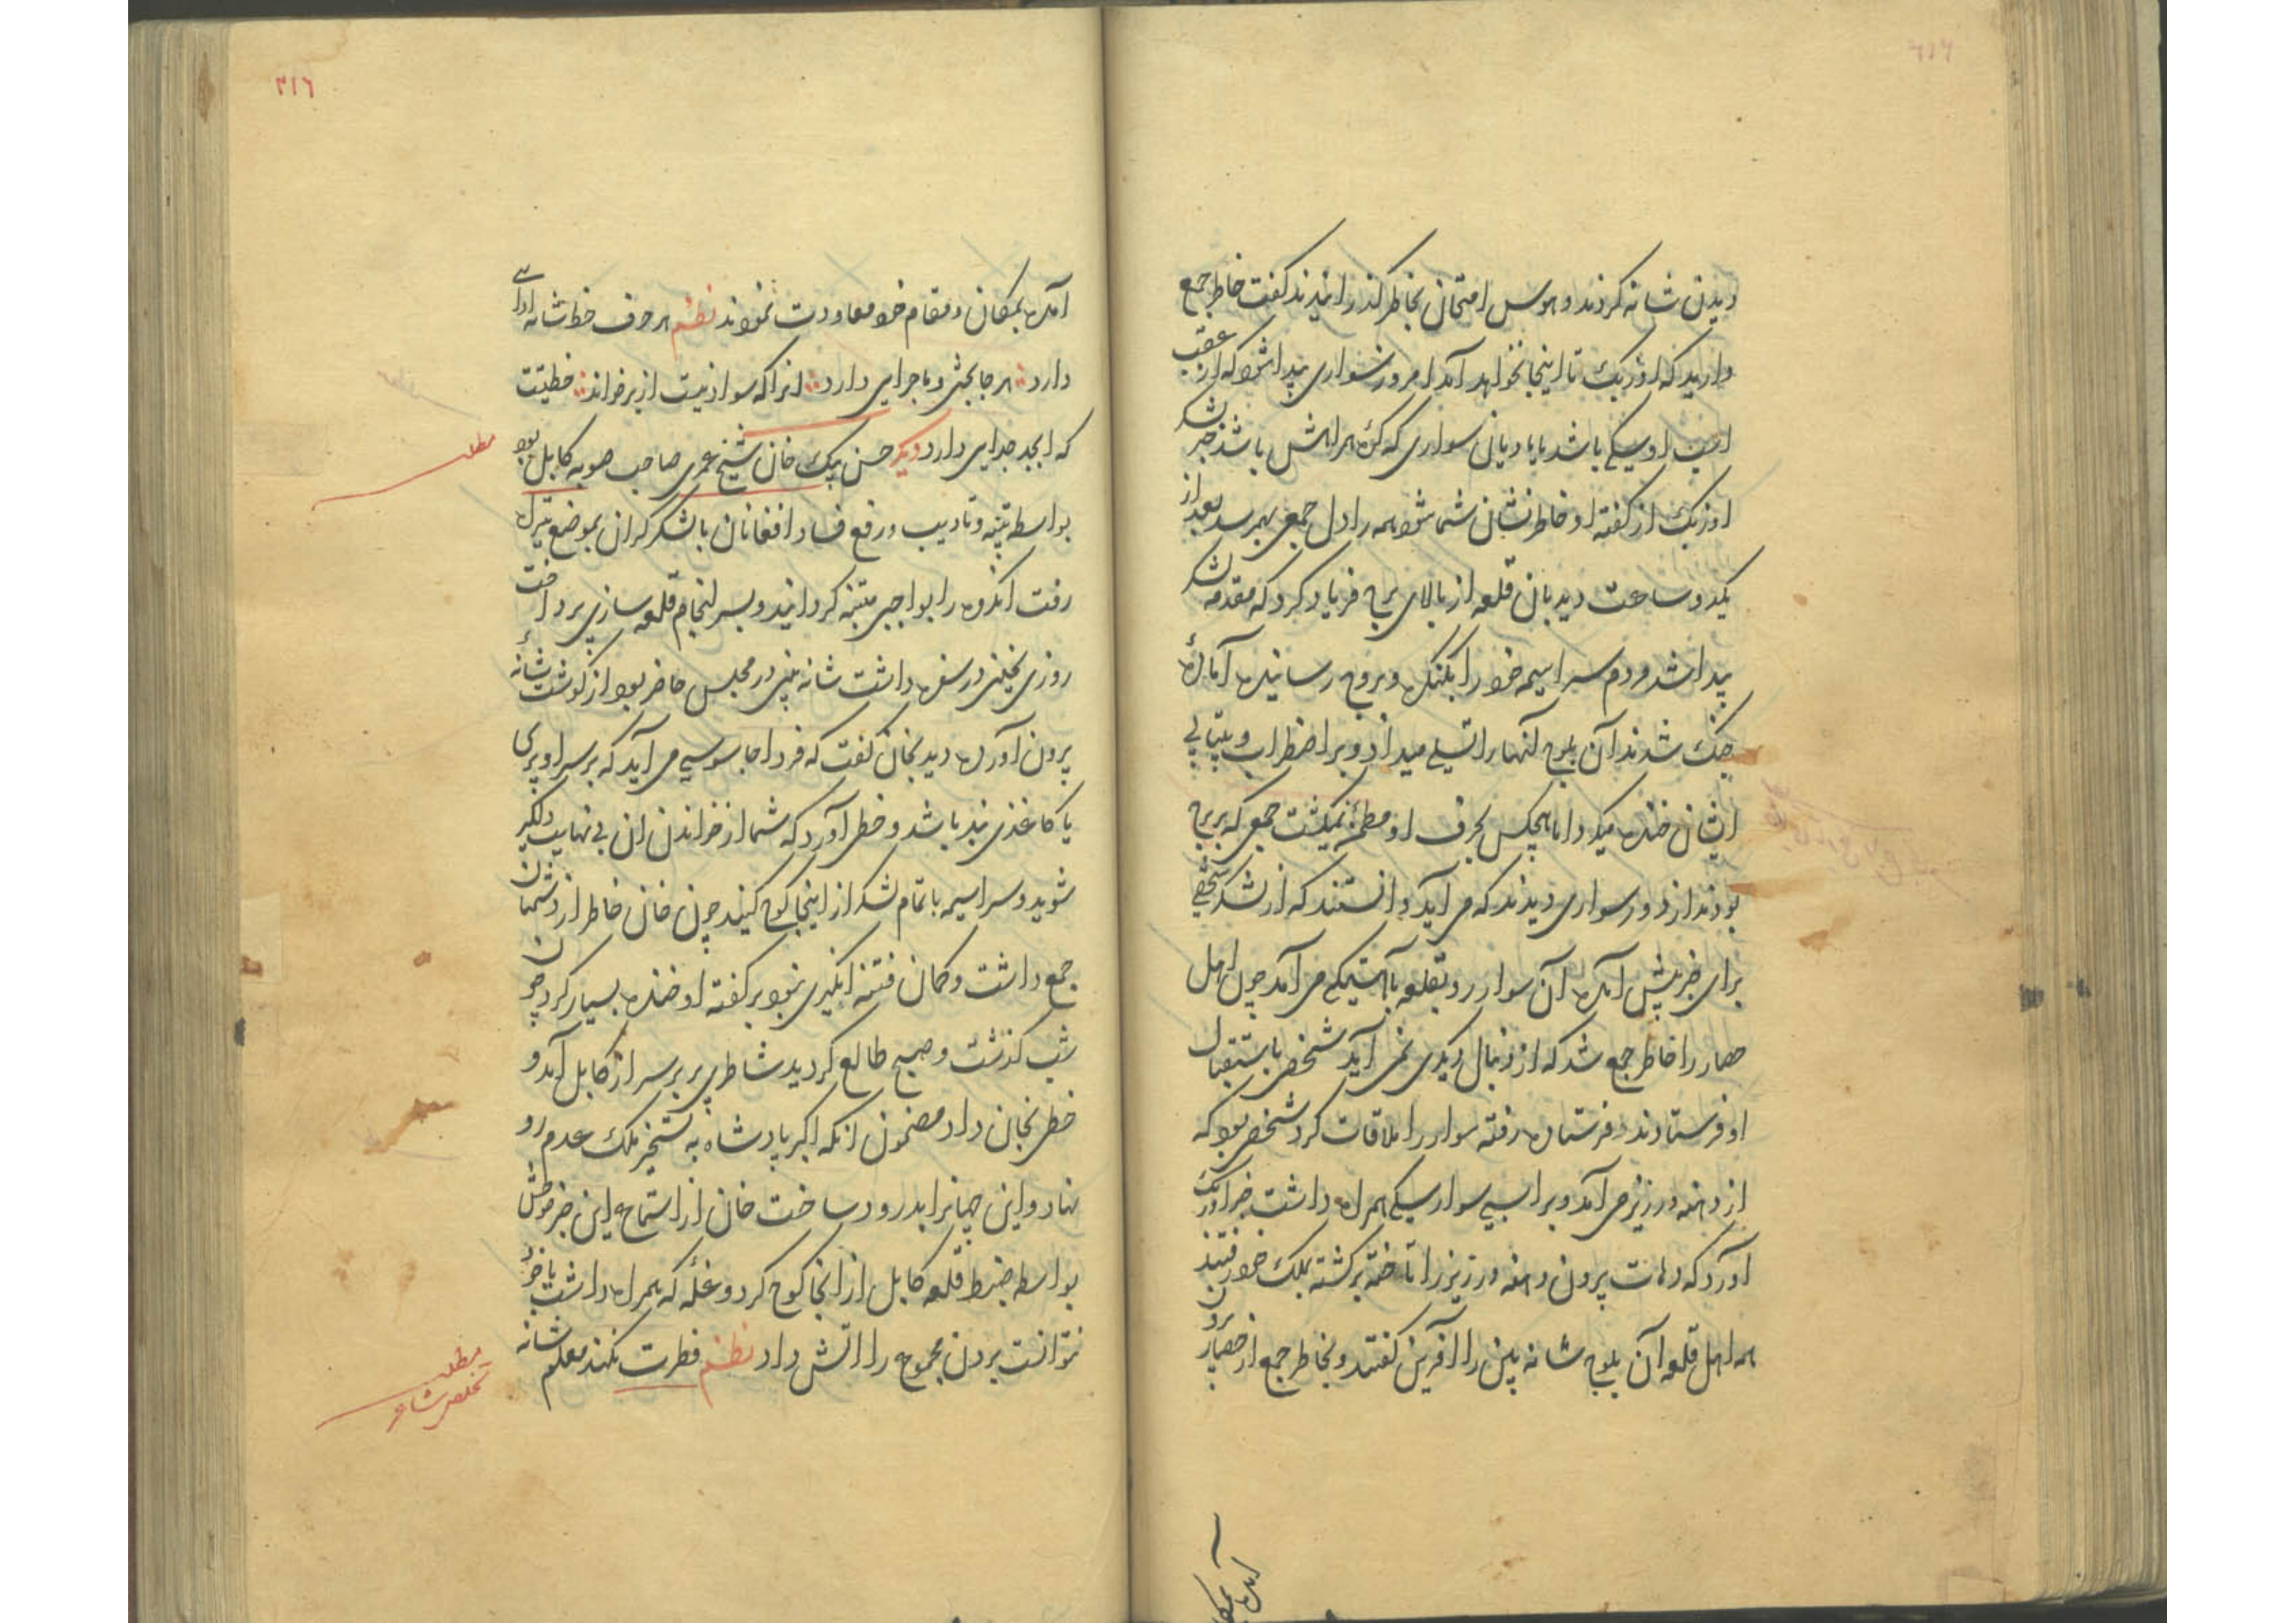 دیدن شانه کردند و هوس امتحان بخاطر گذرانیدند گفت خاطر جمع
دارید که اوزبک تا اینجا نخواهد آمد امروز سواری پیدا شود که از عقب
اسپ او سگی باشد یا مادیان سواری که کره همراهش باشد خبر لشکر
اوزبک از گفته او خاطرنشان شما شود همه را دل جمعی بهم رسید بعد از
یکدو ساعت دیدبان قلعه از بالای برج فریاد کرد که مقدمه لشکر
پیدا شد مردم سراسیمه خود را بکنکره و بروج رسانیده آماده
جنک شدند آن بلوچ آنها را تسلی میداد و بر اضطراب و بیتابی
ایشان خنده میکرد اما هیچکس بحرف او مطمئن نمیکشت جمعی که بر برج
بودند از دور سواری دیدند که می آید دانستند که از لشکر شخصی
برای خبر پیش آمده آن سوار رو بقلعه بآهستیکی می آمد چون اهل
حصار را خاطر جمع شد که از دنبال دیکری نمی آید شخصی باستقبال
او فرستادند فرستاده رفته سوار را ملاقات کرد شخصی بود که
از دهنه درزیر می آمد و بر اسپی سوار سگی همراه داشت خبر اوزبک
آورد که دهات بیرون دهنه درزیر را تاخته برکشته بملک خود رفتند
همه اهل قلعه آن بلوچ شانه بین را آفرین گفتند و بخاطر جمع از حصار برون
آمده بمکان
٣١٦
آمده بمکان و مقام خود معاودت نمودند نظم هر حرف خط شانه ادائی
دارد هر جا بحثی و ماجرایی دارد آنرا که سواد نیست از بر خواند خطیست
که ابجد جدایی دارد دیکر حسن بیک خان شیخ عمری صاحب صوبه کابل بود
مطلب
بواسطه تنبیه و تادیب و رفع فساد افغانان با لشکر کران بموضع تیراه
رفت آنکروه را بواجبی متنبه کردانید و بسر انجام قلعه سازی پرداخت
روزی یخنی در سفره داشت شانه بینی در مجلس حاضر بود از کوشت شانهٔ
برون آورده دید بخان گفت که فردا جاسوسی می آید که بر سر او پری
یا کاغذی بند باشد و خطی آورد که شما از خواندن آن بی نهایت دلکیر
شوید و سراسیمه با تمام لشکر از اینجا کوچ کنید چون خان خاطر از دشمنان
جمع داشت و کمان فتنه انکیزی نبود بر گفته او خنده بسیار کرد چون
شب کذشت و صبح طالع کردید شاطری پر بر سر از کابل آمد و
خطی بخان داد مضمون آنکه اکبر پادشاه به تسخیر ملک عدم رو
نهاد و این جهانرا بدرود ساخت خان از استماع این خبر موحش
بواسطه ضبط قلعه کابل از آنجا کوچ کرد و غله که همراه داشت با خود
نتوانست بردن مجموع را آتش داد نظم فطرت نکند معلم شانه
مطلب
تخلص شاعر